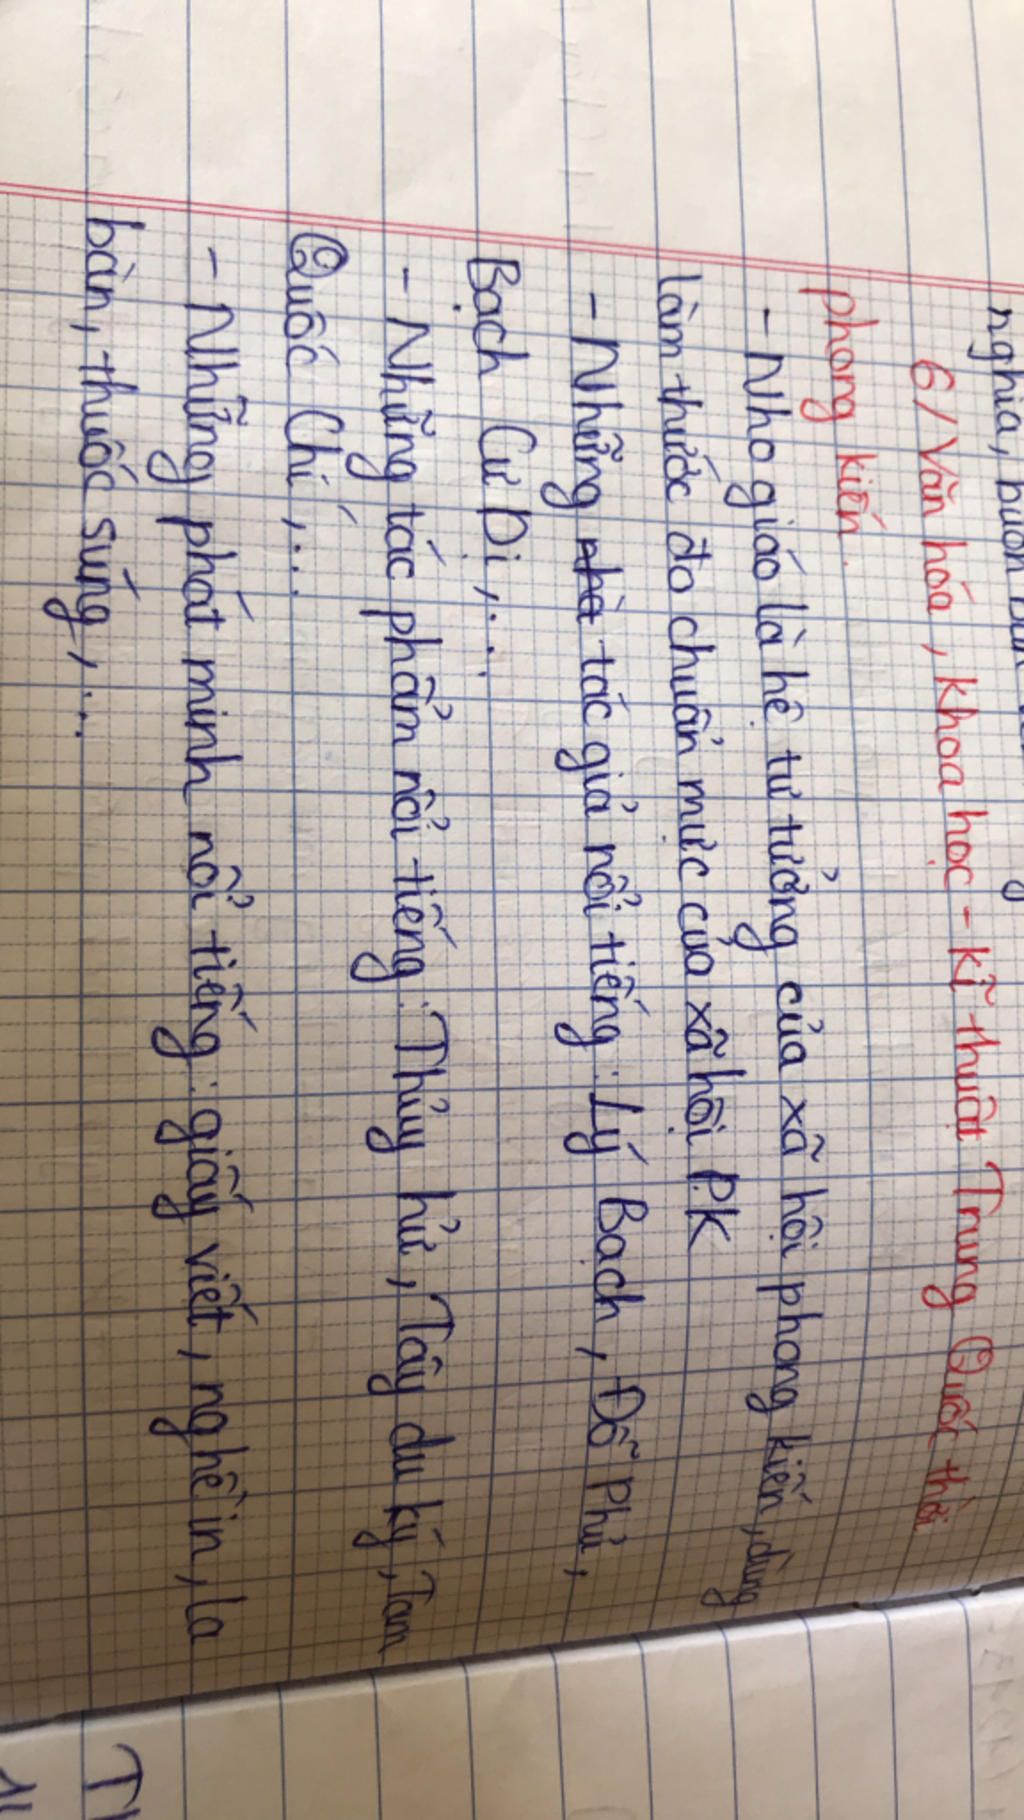 nghĩa, buôn bán
6/ Văn hóa, khoa học - kĩ thuật Trung Quốc thời
phong kiến.
- Nho giáo là hệ tư tưởng của xã hội phong kiến, dùng
làm thước đo chuẩn mực của xã hội P.K
- Những nhà tác giả nổi tiếng: Lý Bạch, Đỗ Phủ,
Bạch Cư Dị,...
- Những tác phẩm nổi tiếng: Thủy hử, Tây du ký, Tam
Quốc Chí,...
- Những phát minh nổi tiếng: giấy viết, nghề in, la
bàn, thuốc súng,...